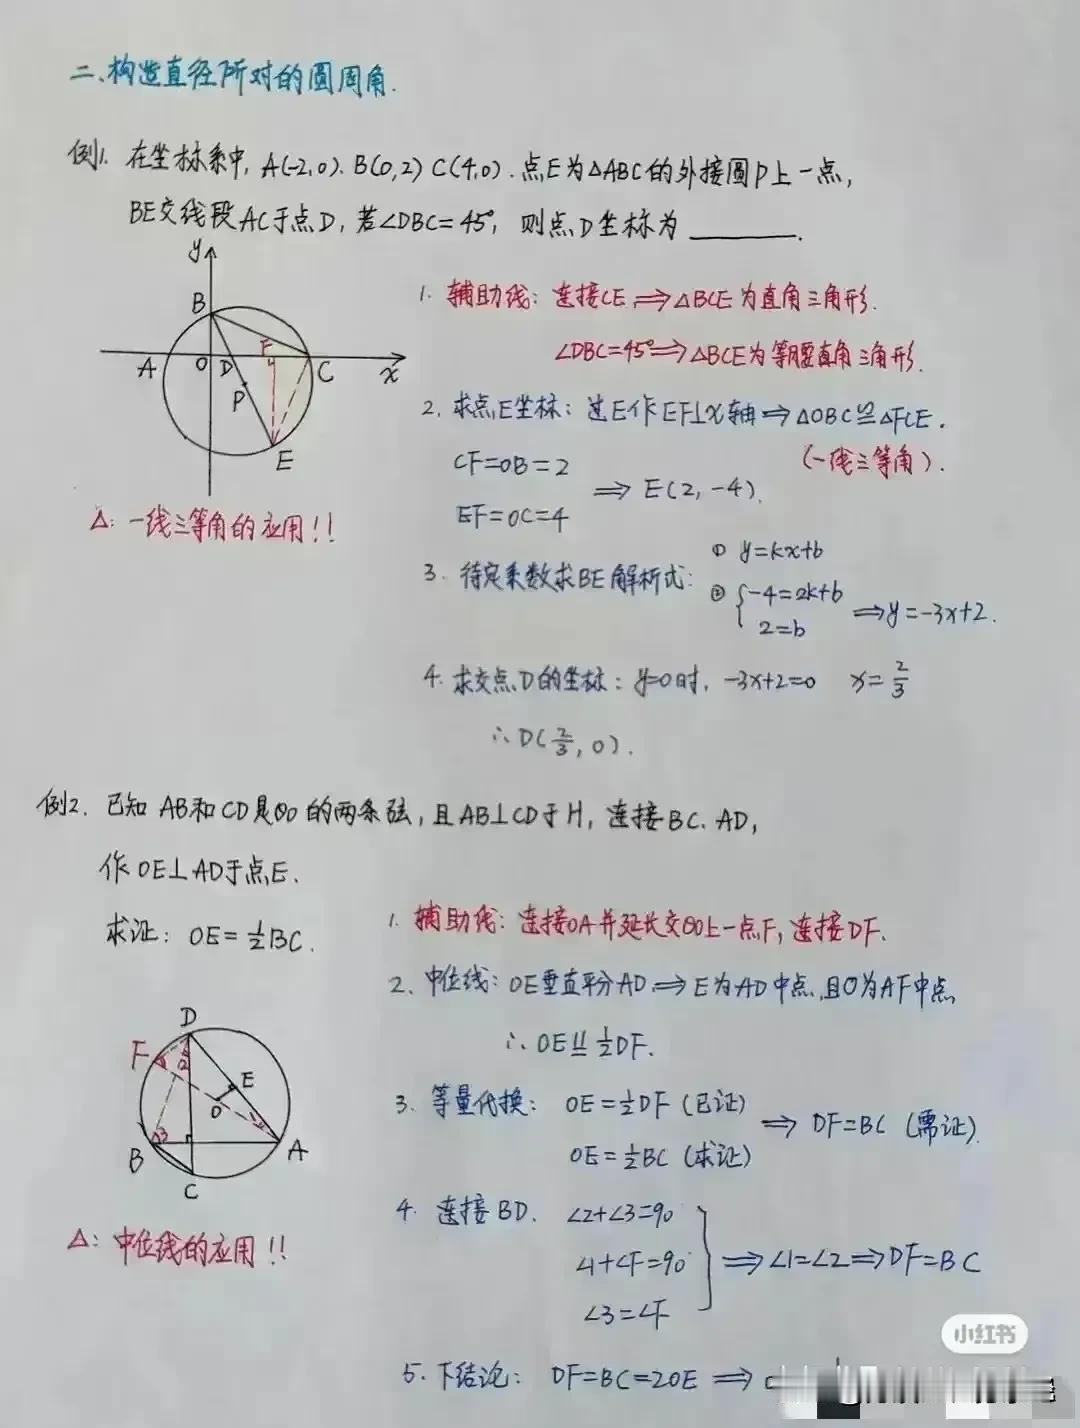 二、构造直径所对的圆周角.
例1. 在坐标系中, A(-2,0). B(0,2) C(4,0). 点E为△ABC的外接圆P上一点,
BE交线段AC于点D, 若∠DBC=45°, 则点D坐标为 ______.
y
B
A
O
D
F
C
x
P
E
△: 一线三等角的应用!!
1. 辅助线: 连接CE ⟹ △BCE为直角三角形.
∠DBC=45° ⟹ △BCE为等腰直角三角形.
2. 求点E坐标: 过E作EF⊥x轴 ⟹ △OBC≌△FCE.
(一线三等角).
CF=OB=2
EF=OC=4
⟹ E(2,-4).
3. 待定系数求BE解析式:
① y=kx+b
② {-4=2k+b
2=b
⟹ y=-3x+2.
4. 求交点D的坐标: y=0时, -3x+2=0 x=2/3
∴D(2/3,0).
例2. 已知AB和CD是⊙O的两条弦, 且AB⊥CD于H, 连接BC. AD,
作OE⊥AD于点E.
求证: OE=½BC.
D
F
2
E
O
3
B
A
C
△: 中位线的应用!!
1. 辅助线: 连接OA并延长交⊙O上一点F, 连接DF.
2. 中位线: OE垂直平分AD ⟹ E为AD中点, 且O为AF中点
∴ OE∥=½DF.
3. 等量代换: OE=½DF (已证)
OE=½BC (求证)
⟹ DF=BC (需证).
4. 连接BD. ∠2+∠3=90
∠1+∠F=90
∠3=∠F
⟹ ∠1=∠2 ⟹ DF=BC
5. 下结论: DF=BC=2OE ⟹
小红书